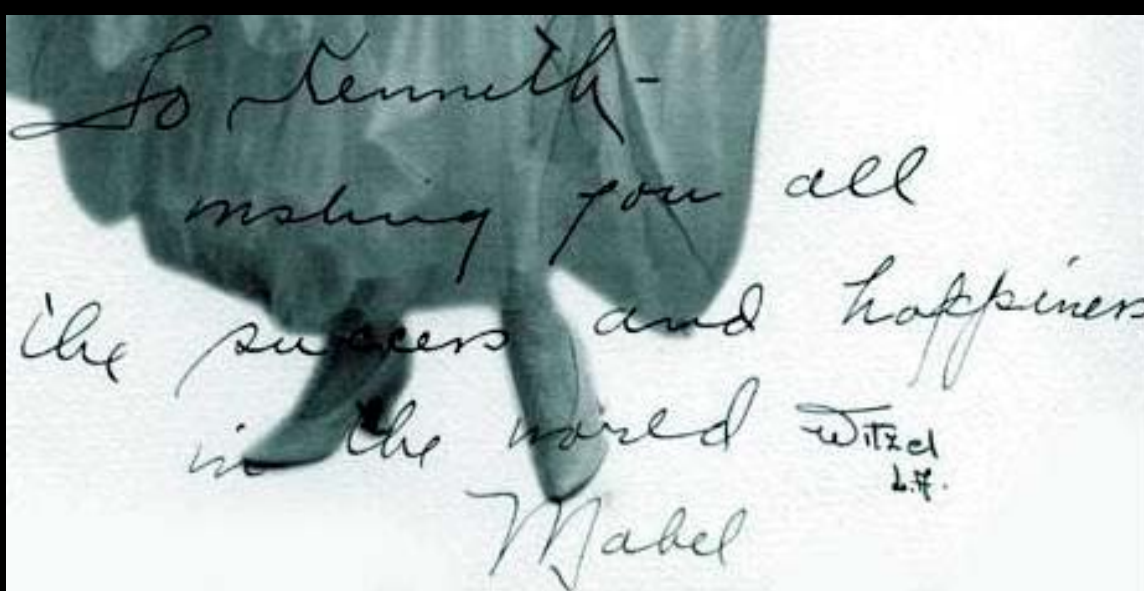 To Kenneth-
wishing you all
the success and happiness
in the world
Witzel
L.A.
Mabel